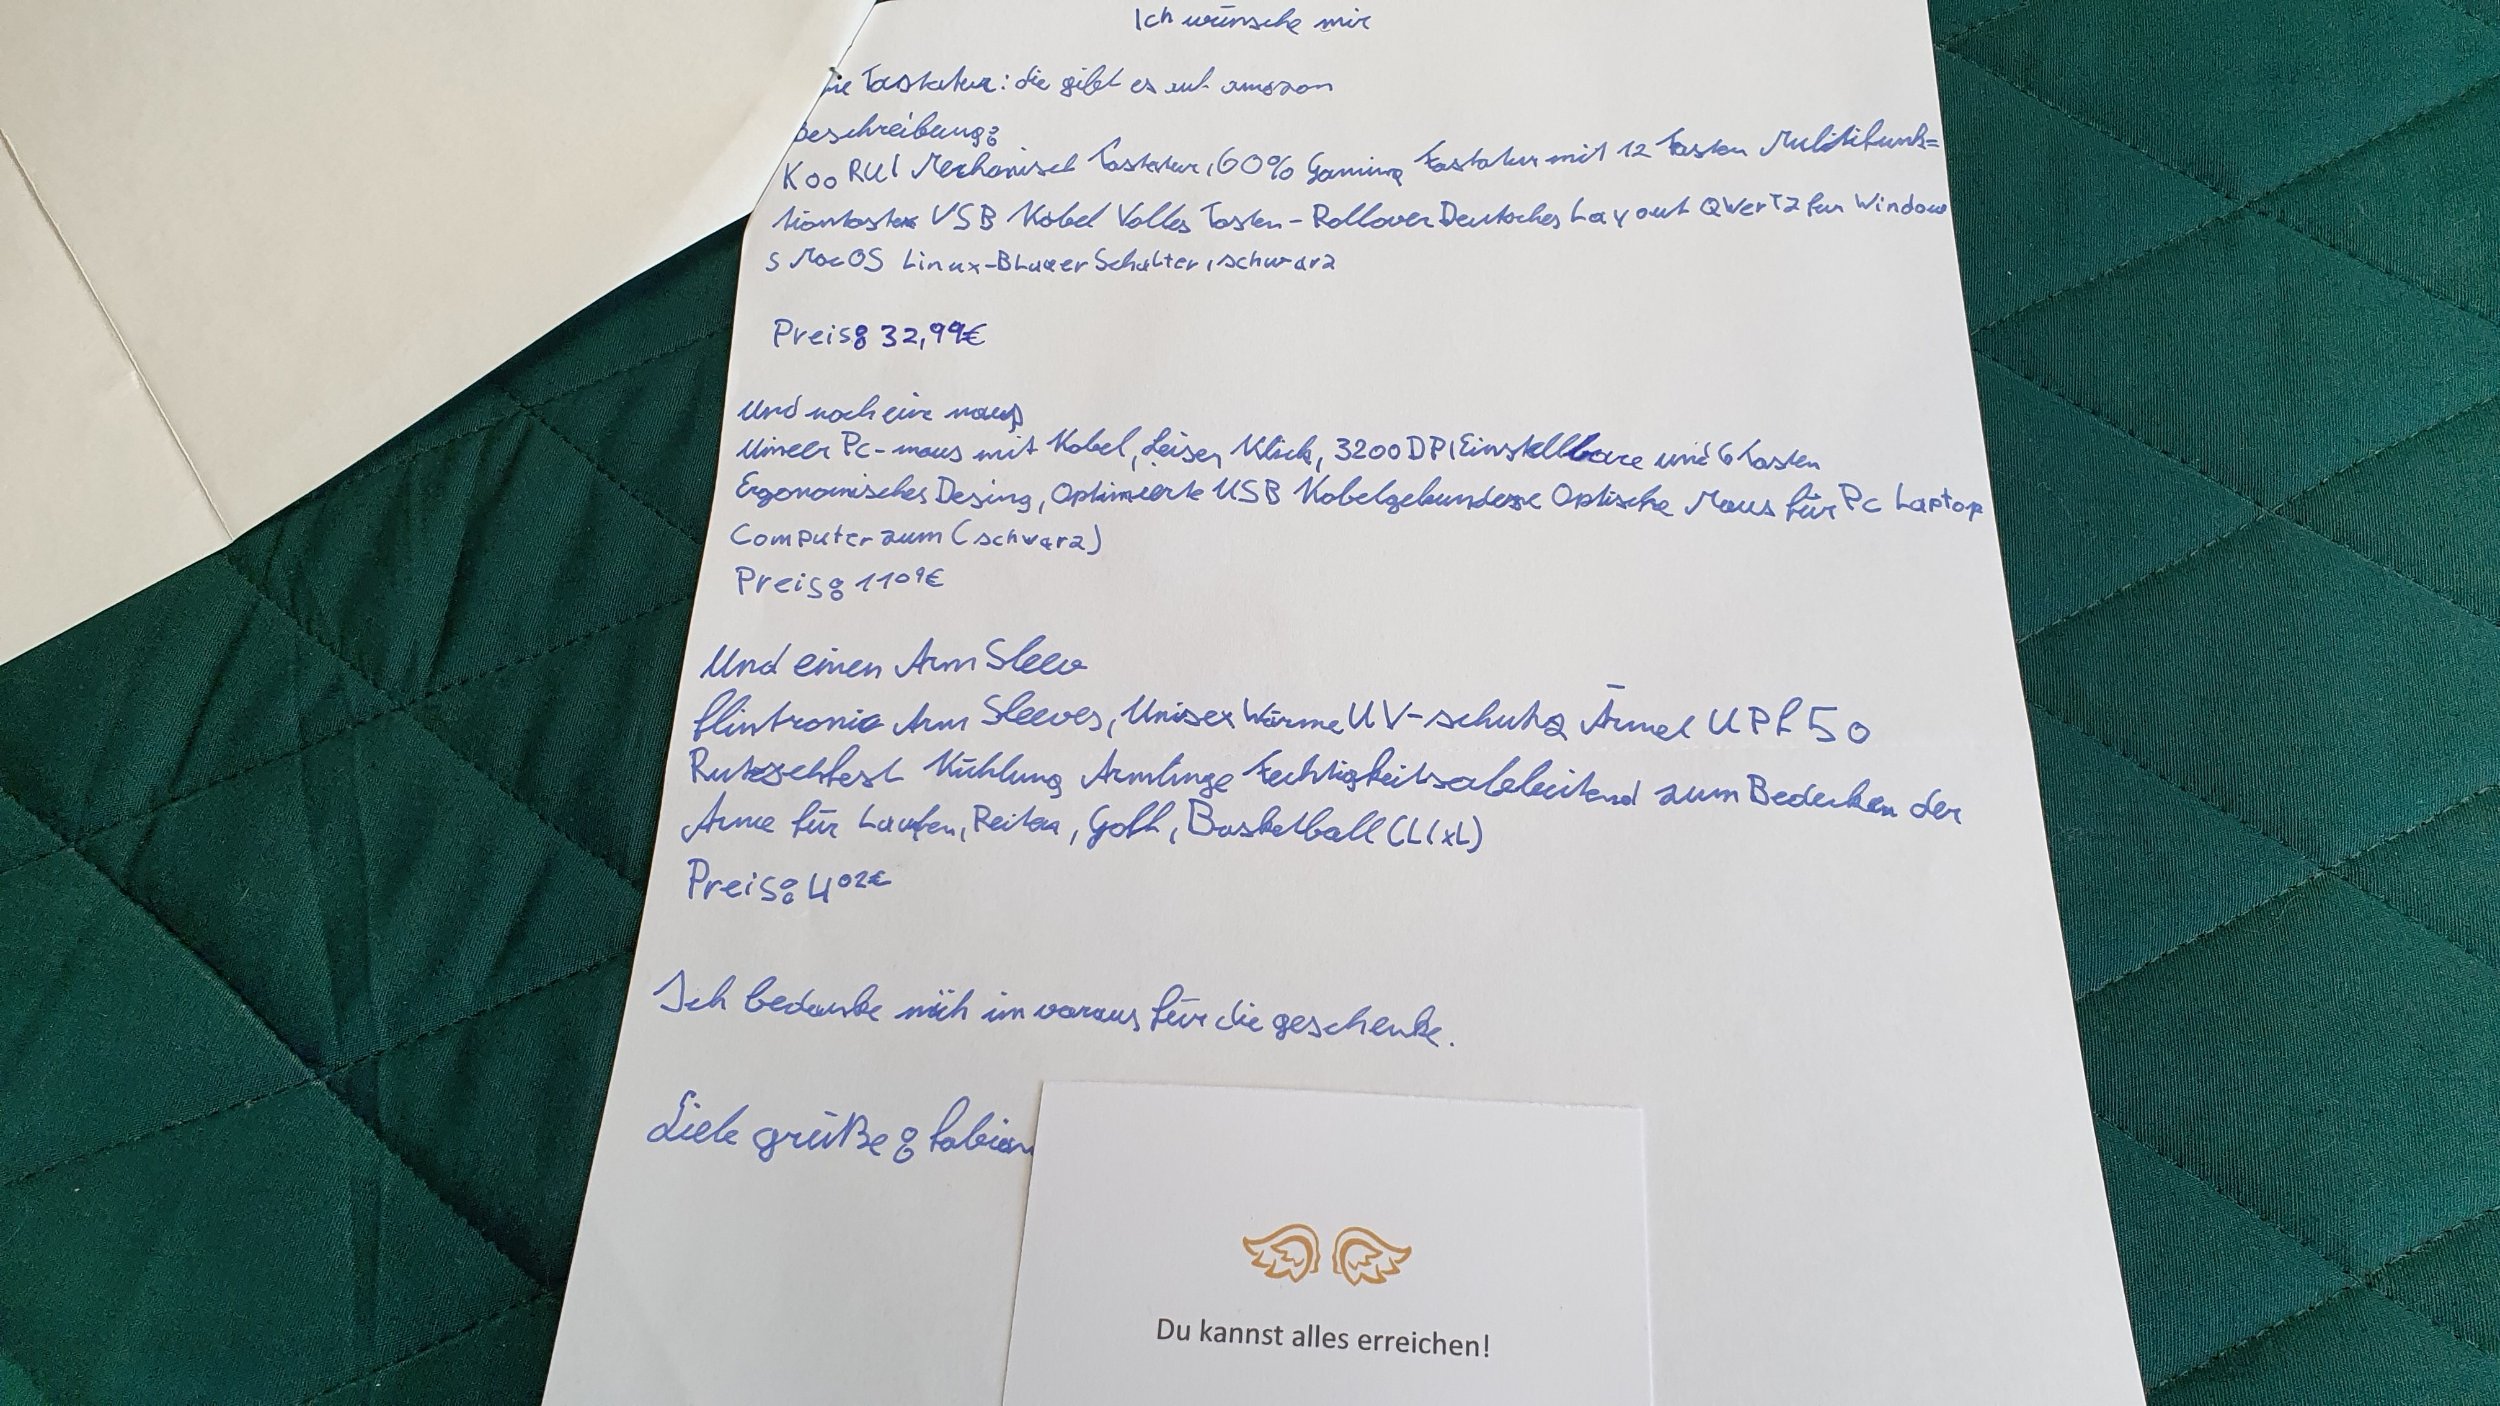 Ich wünsche mir
ie Tastatur: die gibt es auf amazon
Beschreibung:
KooRUI Mechanisch Tastatur, 60% Gaming Tastatur mit 12 Tasten Multifunk=
tiontasten USB Kabel Volles Tasten-Rollover Deutsches Layout QWERTZ für Window
s MacOS Linux-BLauer Schalter, schwarz
Preis: 32,99€
Und noch eine maus
Uineer Pc-maus mit Kabel, Leiser Klick, 3200 DPI Einstellbare und 6 Tasten
Ergonomisches Desing, Optimierte USB Kabelgebundene Optische Maus für Pc Laptop
Computer zum (schwarz)
Preis: 1109€
Und einen Arm Sleev
flintronic Arm Sleeves, Unisex Wärme UV-schutz Ärmel UPF 50
Rutschfest Kühlung Armlinge Fechtigkeitsableitend zum Bedecken der
Arme für Laufen, Reiten, Golf, Basketball (L/xL)
Preis: 402€
Ich bedanke mich im voraus für die geschenke.
Liebe grüße: fabian
Du kannst alles erreichen!